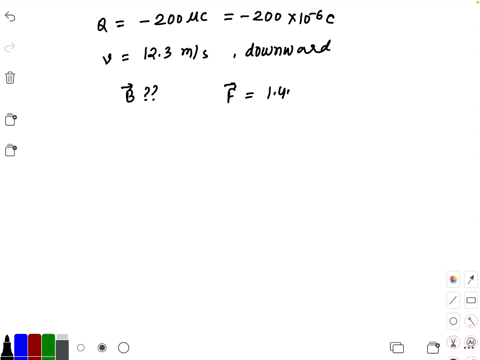 Q = -200 μC = -200 × 10⁻⁶ C
v = 12.3 m/s , downward
B⃗ ?? F⃗ = 1.4